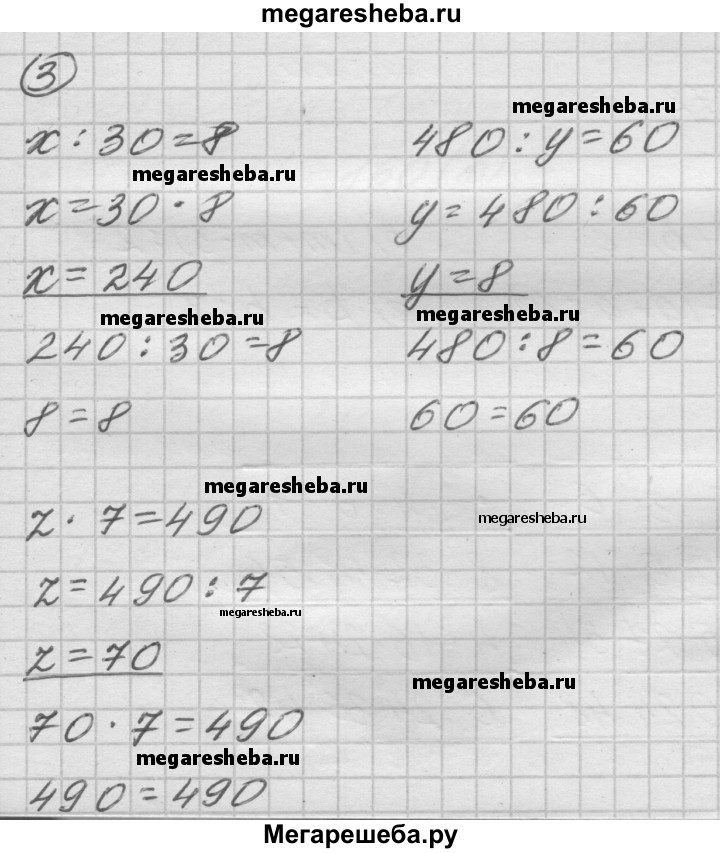 megaresheba.ru
3
megaresheba.ru
x : 30 = 8
megaresheba.ru
x = 30 · 8
x = 240
megaresheba.ru
240 : 30 = 8
8 = 8
480 : y = 60
y = 480 : 60
y = 8
megaresheba.ru
480 : 8 = 60
60 = 60
megaresheba.ru
z · 7 = 490
megaresheba.ru
z = 490 : 7
megaresheba.ru
z = 70
megaresheba.ru
70 · 7 = 490
megaresheba.ru
490 = 490
Мегарешеба.ру